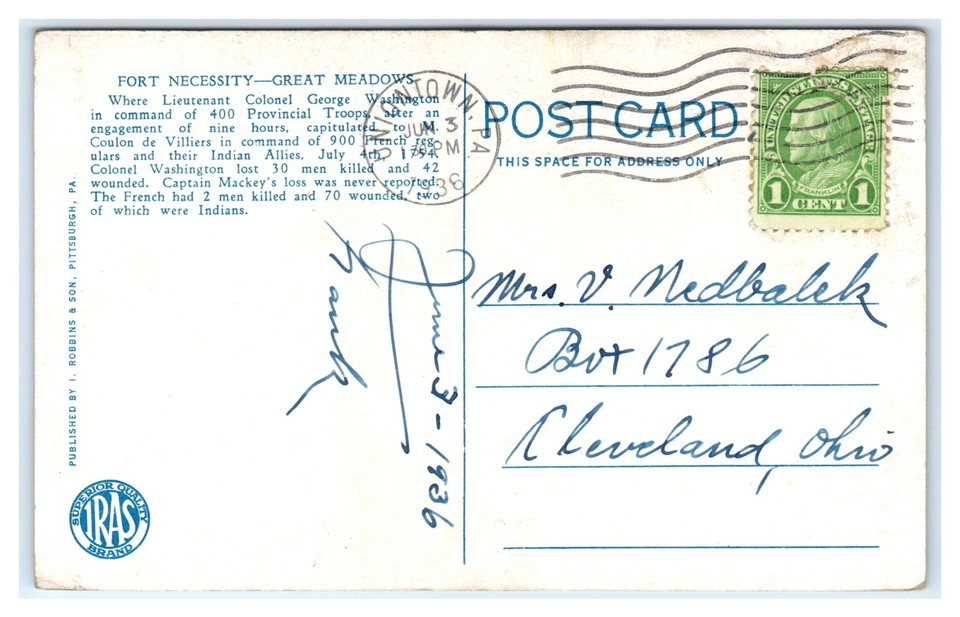 FORT NECESSITY—GREAT MEADOWS
Where Lieutenant Colonel George Washington
in command of 400 Provincial Troops, after an
engagement of nine hours, capitulated to M.
Coulon de Villiers in command of 900 French reg-
ulars and their Indian Allies, July 4th, 1754.
Colonel Washington lost 30 men killed and 42
wounded. Captain Mackey's loss was never reported.
The French had 2 men killed and 70 wounded, two
of which were Indians.
PUBLISHED BY I. ROBBINS & SON, PITTSBURGH, PA
SUPERIOR QUALITY
IRAS
BRAND
June 3-1936
Frank
UNIONTOWN, PA
JUN 3
PM
1936
POST CARD
THIS SPACE FOR ADDRESS ONLY
UNITED STATES POSTAGE
FRANKLIN
1 CENT 1
Mrs. V. Nedbalek
Box 1786
Cleveland, Ohio